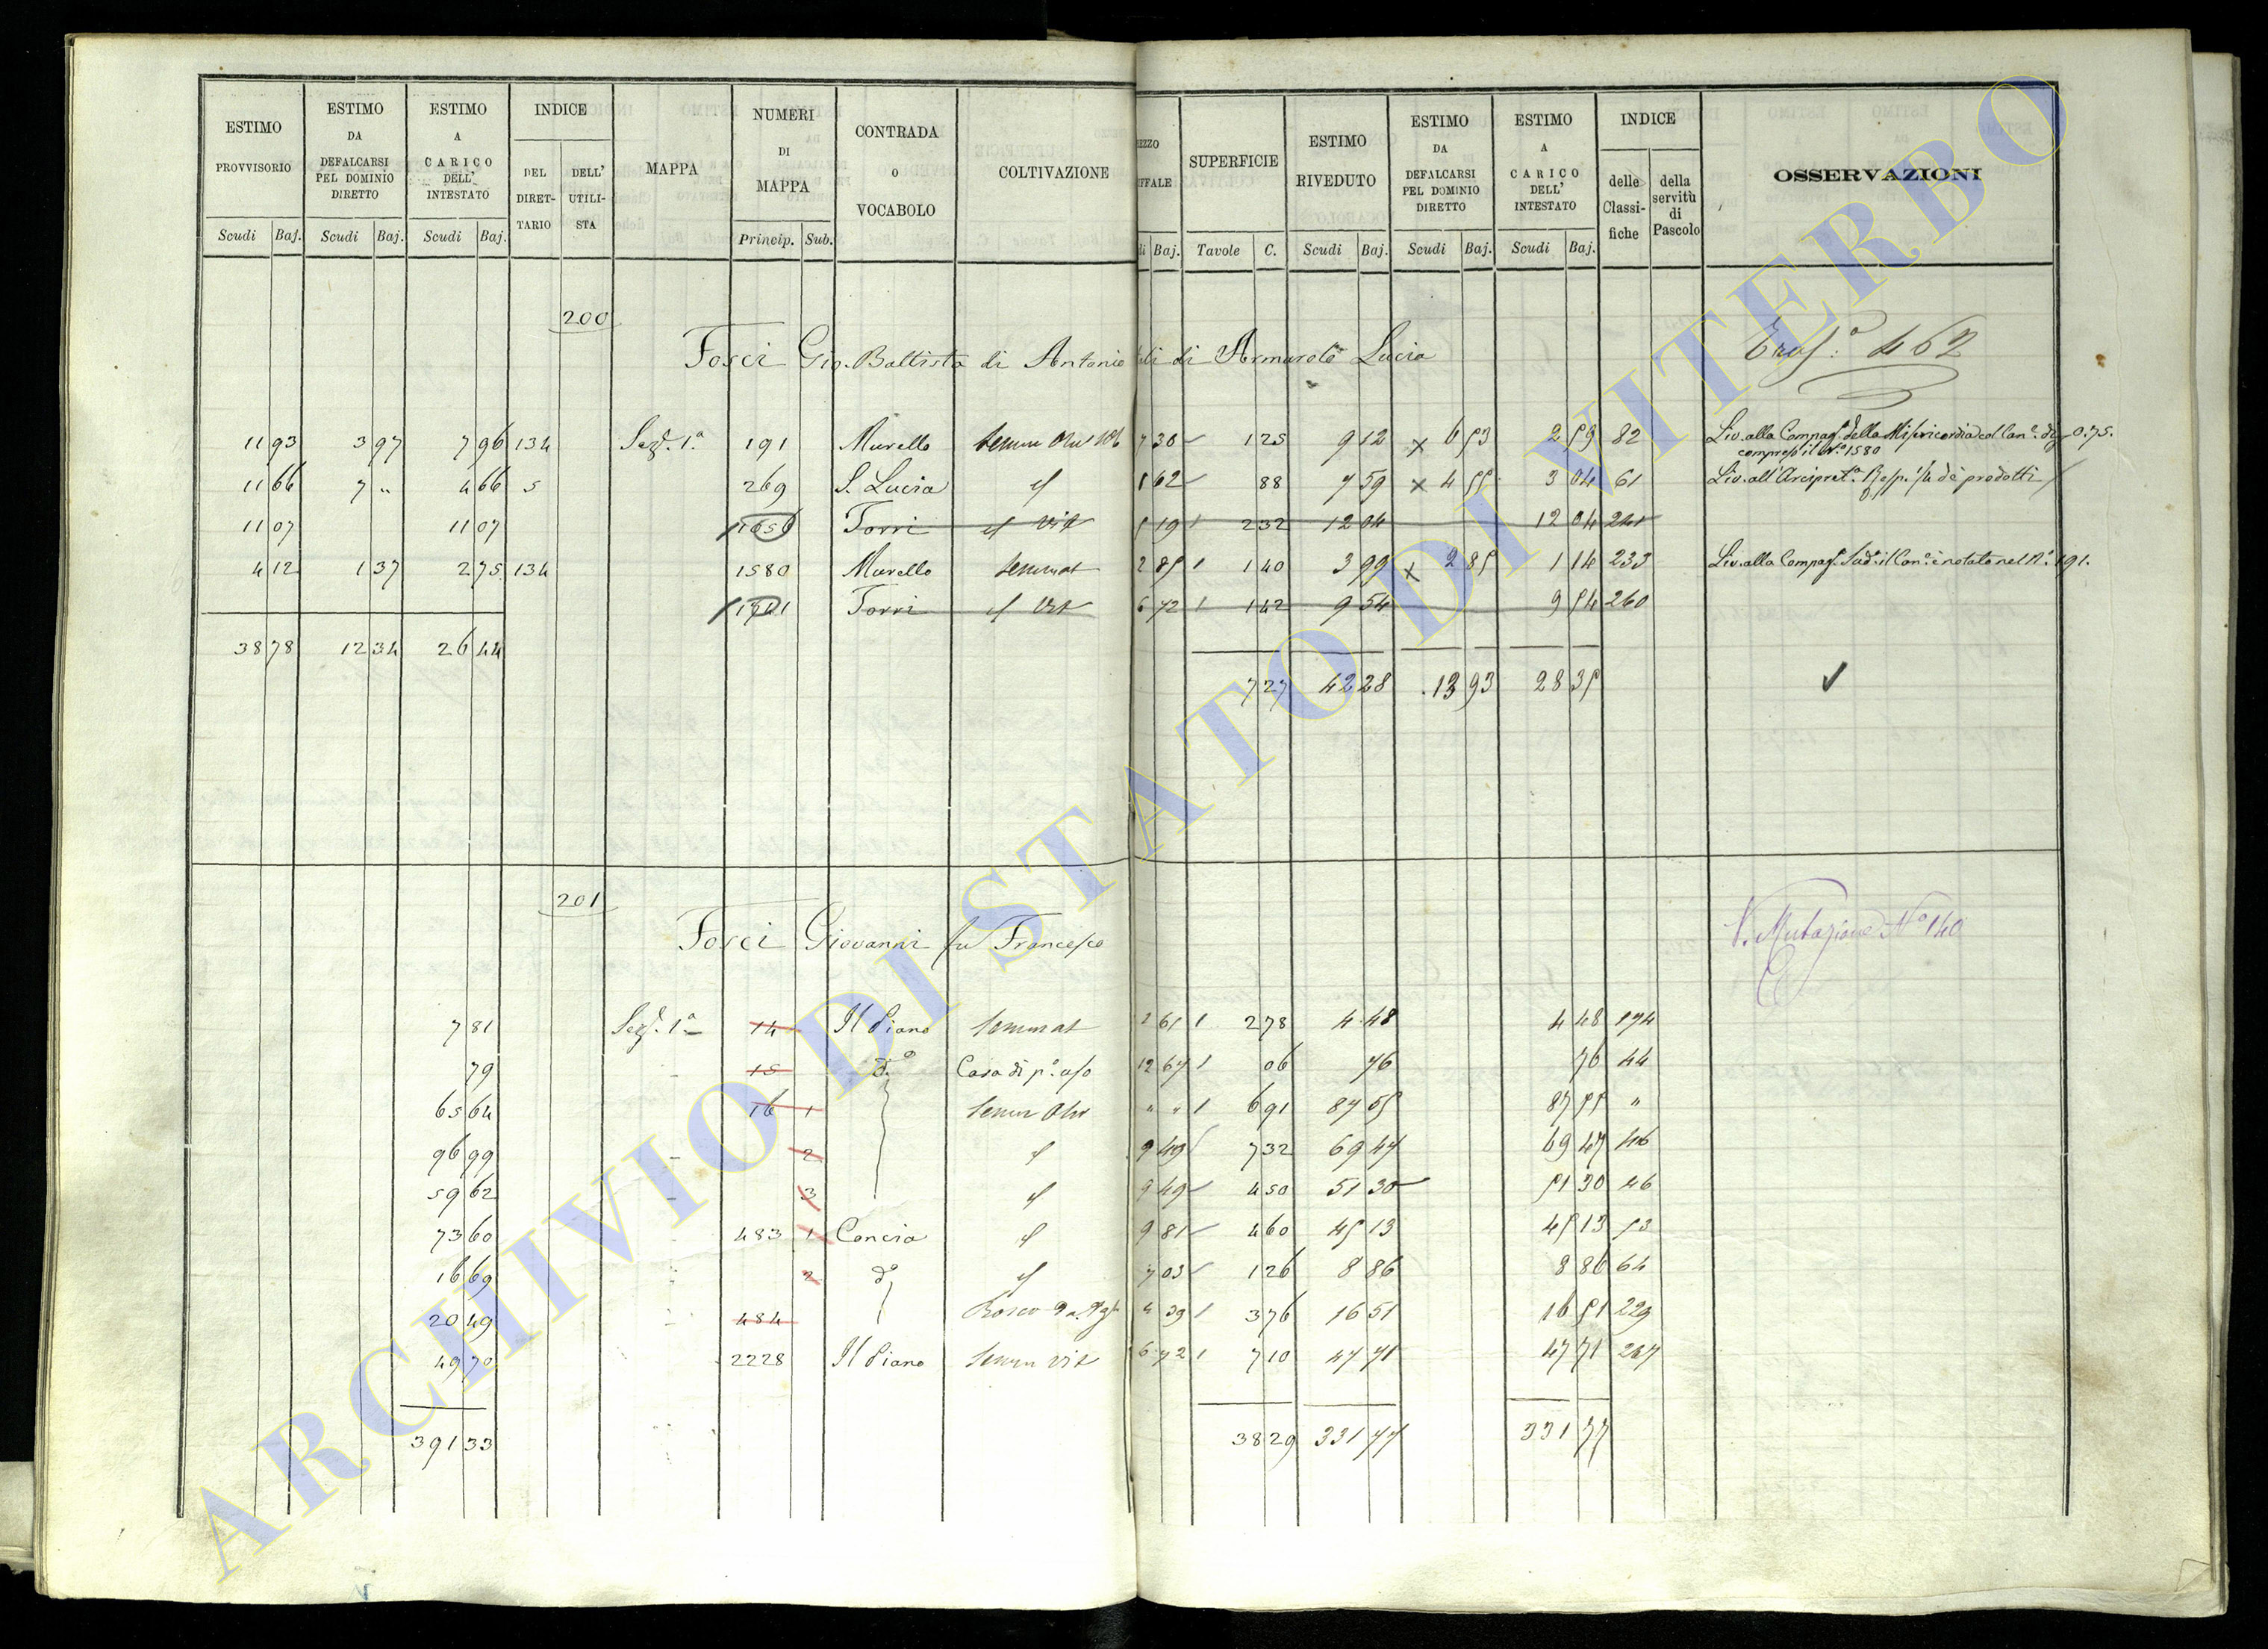 ESTIMO PROVVISORIO | ESTIMO DA DEFALCARSI PEL DOMINIO DIRETTO | ESTIMO A CARICO DELL' INTESTATO | INDICE | MAPPA | NUMERI DI MAPPA | CONTRADA O VOCABOLO | COLTIVAZIONE | EZZO IFFALE | SUPERFICIE | ESTIMO RIVEDUTO | ESTIMO DA DEFALCARSI PEL DOMINIO DIRETTO | ESTIMO A CARICO DELL' INTESTATO | INDICE | OSSERVAZIONI
DEL DIRETTARIO | DELL' UTILISTA | delle Classifiche | della servitù di Pascolo
Scudi | Baj. | Scudi | Baj. | Scudi | Baj. | Princip. | Sub. | di | Baj. | Tavole | C. | Scudi | Baj. | Scudi | Baj. | Scudi | Baj.
200
Fosci Gio. Battista di Antonio di Armarolo Lucia
Trasp.º 462
11 93 | 3 97 | 7 96 | 134 | Sez.e 1.a | 191 | Murello | Semin Oliv Vit | 7 30 | 1 25 | 9 12 | x 6 53 | 2 59 | 82 | Liv. alla Compag.a della Misericordia col Can.e di 0.75.
compreso il N.º 1580
11 66 | 7 " | 4 66 | 5 | 269 | S. Lucia | id | 8 62 | 88 | 7 59 | x 4 55 | 3 04 | 61 | Liv. all'Arcipret.a Resp. 1/4 de prodotti
11 07 | 11 07 | 1656 | Torri | id Vit | 5 19 | 2 32 | 12 04 | 12 04 | 241
4 12 | 1 37 | 2 75 | 134 | 1580 | Murello | Seminat | 2 85 | 1 40 | 3 99 | x 2 85 | 1 14 | 233 | Liv. alla Compag.a Sud.a il Can.e è notato nel N.º 191.
1701 | Torri | id Vit | 6 72 | 1 42 | 9 54 | 9 54 | 260
38 78 | 12 34 | 26 44 | 7 27 | 42 28 | 13 93 | 28 35
201
Fosci Giovanni fu Francesco
V. Mutazione Nº 140
7 81 | Sez.e 1.a | 14 | Il Piano | Seminat | 2 61 | 2 78 | 4 48 | 4 48 | 194
79 | 15 | d.º | Casa di p.º uso | 12 67 | 06 | 76 | 76 | 44
65 64 | 16 | 1 | Semin Oliv | " " | 6 91 | 87 55 | 87 55 | "
96 99 | 2 | id | 9 49 | 7 32 | 69 47 | 69 47 | 46
59 62 | 3 | id | 9 49 | 4 50 | 51 30 | 51 30 | 46
73 60 | 483 | 1 | Concia | id | 9 81 | 4 60 | 45 13 | 45 13 | 53
16 69 | 2 | d.º | id | 7 03 | 1 26 | 8 86 | 8 86 | 64
20 49 | 484 | Bosco | 4 39 | 3 76 | 16 51 | 16 51 | 229
49 70 | 2228 | Il Piano | Semin Vit | 6 72 | 7 10 | 47 71 | 47 71 | 247
391 33 | 38 29 | 331 77 | 331 77
ARCHIVIO DI STATO DI VITERBO